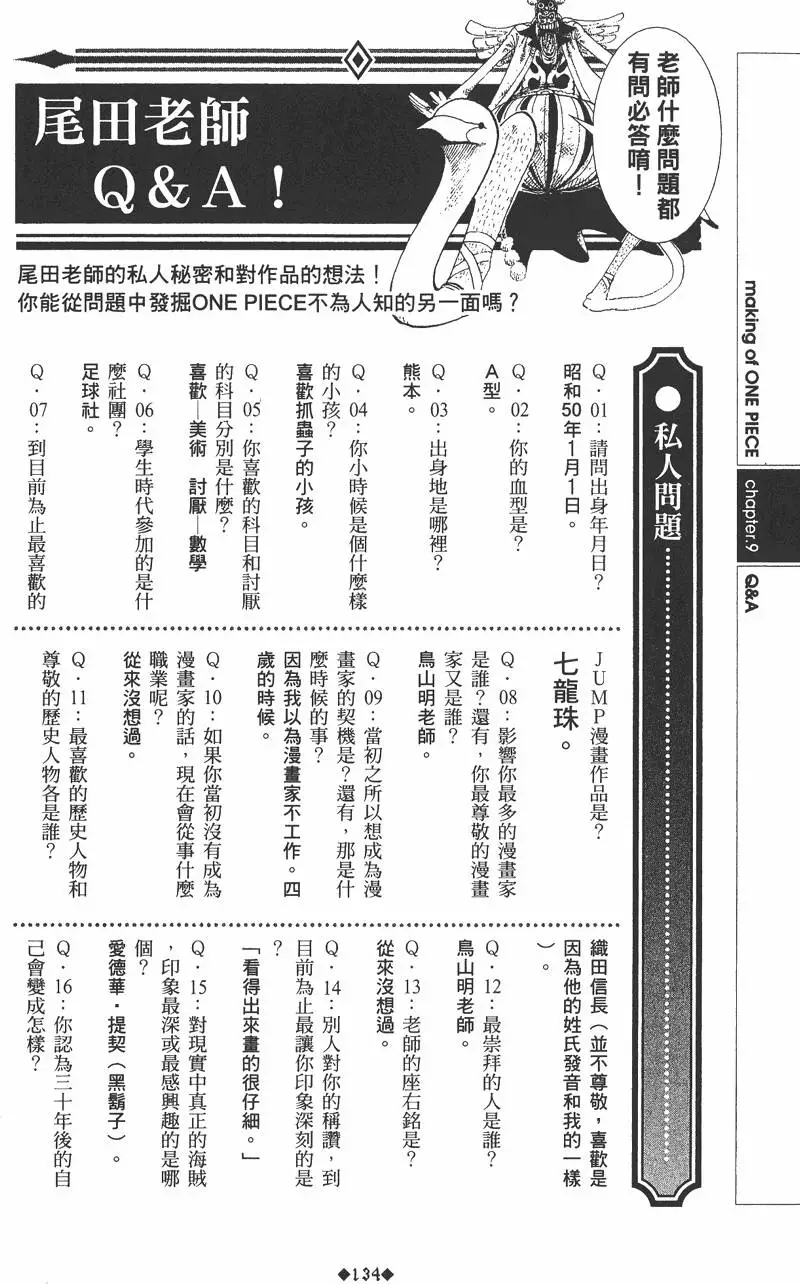 老師什麼問題都
有問必答唷！
尾田老師
Q&A！
尾田老師的私人秘密和對作品的想法！
你能從問題中發掘ONE PIECE不為人知的另一面嗎？
making of ONE PIECE
chapter.9
Q&A
●私人問題
Q・01：請問出身年月日？
昭和50年1月1日。
Q・02：你的血型是？
A型。
Q・03：出身地是哪裡？
熊本。
Q・04：你小時候是個什麼樣
的小孩？
喜歡抓蟲子的小孩。
Q・05：你喜歡的科目和討厭
的科目分別是什麼？
喜歡—美術　討厭—數學
Q・06：學生時代參加的是什
麼社團？
足球社。
Q・07：到目前為止最喜歡的
JUMP漫畫作品是？
七龍珠。
Q・08：影響你最多的漫畫家
是誰？還有，你最尊敬的漫畫
家又是誰？
鳥山明老師。
Q・09：當初之所以想成為漫
畫家的契機是？還有，那是什
麼時候的事？
因為我以為漫畫家不工作。四
歲的時候。
Q・10：如果你當初沒有成為
漫畫家的話，現在會從事什麼
職業呢？
從來沒想過。
Q・11：最喜歡的歷史人物和
尊敬的歷史人物各是誰？
織田信長（並不尊敬，喜歡是
因為他的姓氏發音和我的一樣
）。
Q・12：最崇拜的人是誰？
鳥山明老師。
Q・13：老師的座右銘是？
從來沒想過。
Q・14：別人對你的稱讚，到
目前為止最讓你印象深刻的是
？
「看得出來畫的很仔細。」
Q・15：對現實中真正的海賊
，印象最深或最感興趣的是哪
個？
愛德華・提契（黑鬍子）。
Q・16：你認為三十年後的自
己會變成怎樣？
◆134◆